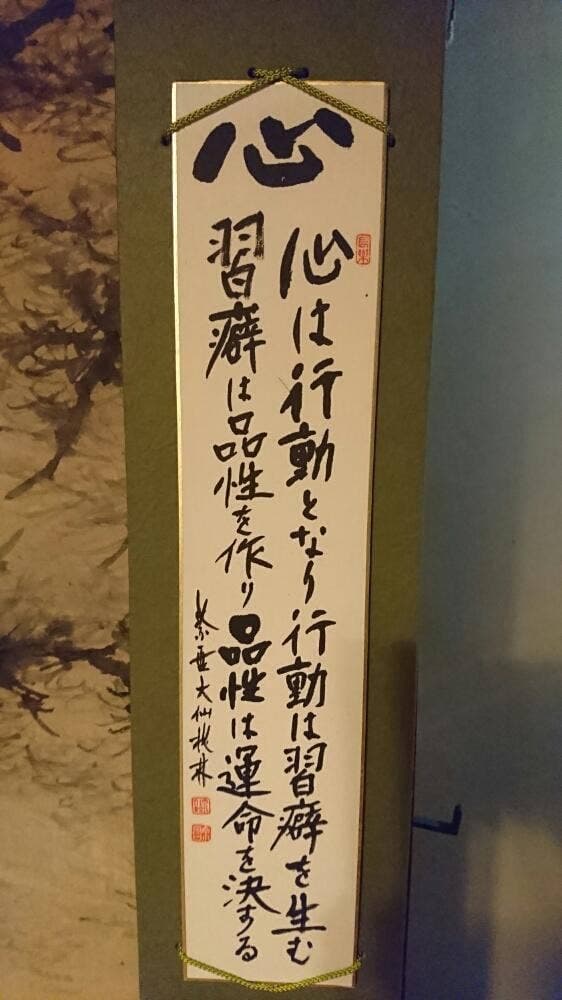 心
心は行動となり行動は習癖を生む
習癖は品性を作り品性は運命を決する
大仙